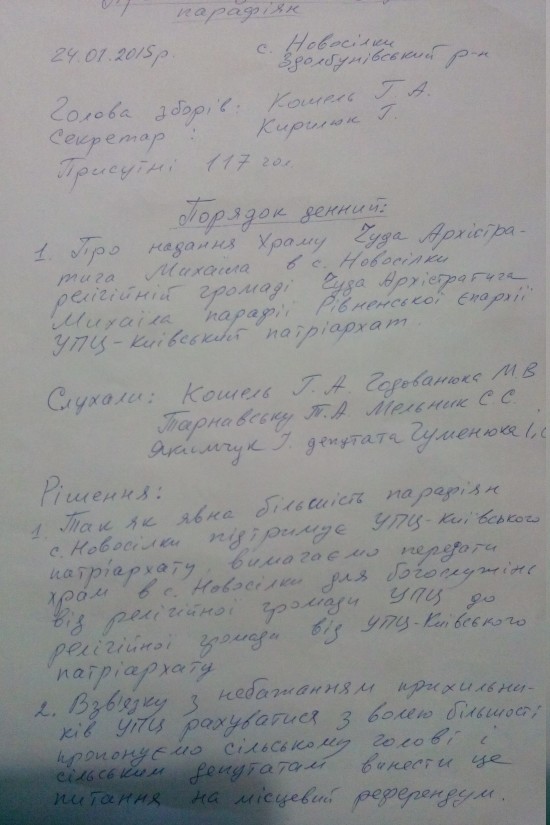 парафіян
24.01.2015р. с. Новосілки
Здолбунівський р-н
Голова зборів: Кошель Г. А.
Секретар : Кирилюк Г.
Присутні 117 чол
Порядок денний:
1. Про надання Храму Чуда Архістра-
тига Михаїла в с. Новосілки
релігійній громаді Чуда Архістратига
Михаїла парафії Рівненської єпархії
УПЦ-Київський патріархат.
Слухали: Кошель Г. А. Годованюка М В
Тарнавську Т.А. Мельник С С.
Якимчук І. депутата Гуменюка І.
Рішення:
1. Так як явна більшість парафіян
с. Новосілки підтримує УПЦ-Київського
патріархату, вимагаємо передати
храм в с. Новосілки для богослужінь
від релігійної громади УПЦ до
релігійної громади від УПЦ-Київського
патріархату
2. Взв'язку з небажанням прихильни-
ків УПЦ рахуватися з волею більшості
пропонуємо сільському голові і
сільським депутатам винести це
питання на місцевий референдум.